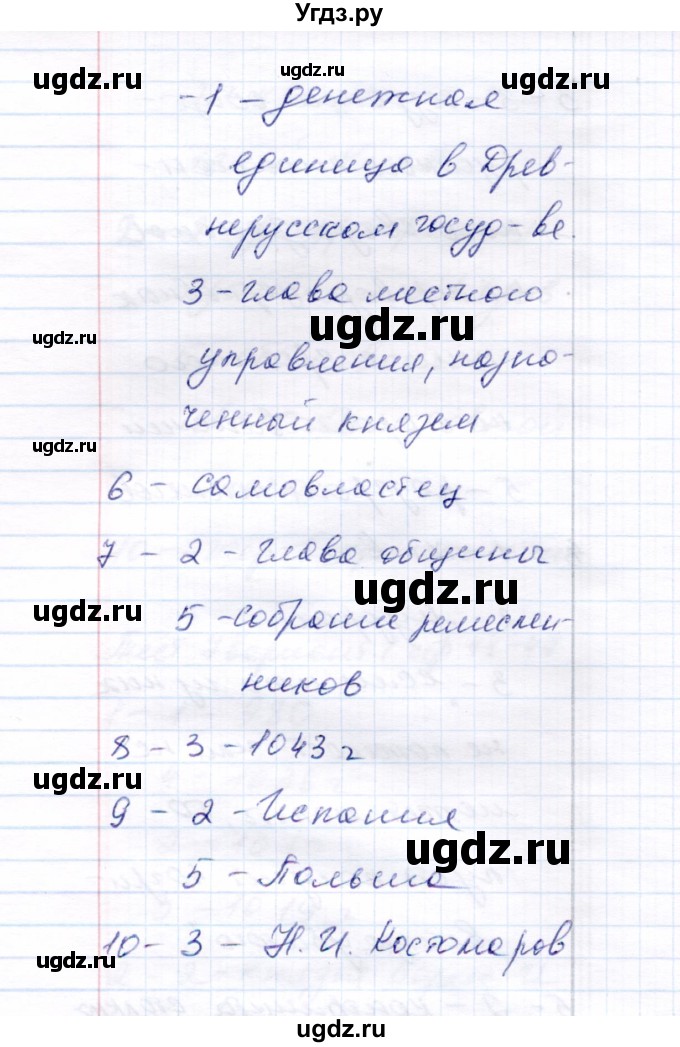 Угдз.ру
ugdz.ru ugdz.ru ugdz.ru
- 1 - денежная
единица в Древ-
нерусском госуд-ве.
3 - глава местного
ugdz.ru ugdz.ru
управления, назна-
ченный князем
ugdz.ru ugdz.ru
6 - самовластец
7 - 2 - глава общины
ugdz.ru ugdz.ru
5 - собрание ремеслен-
ников
8 - 3 - 1043 г
ugdz.ru ugdz.ru
9 - 2 - Испания
ugdz.ru
5 - Польша
10 - 3 - Н.И. Костомаров
ugdz.ru ugdz.ru
ugdz.ru